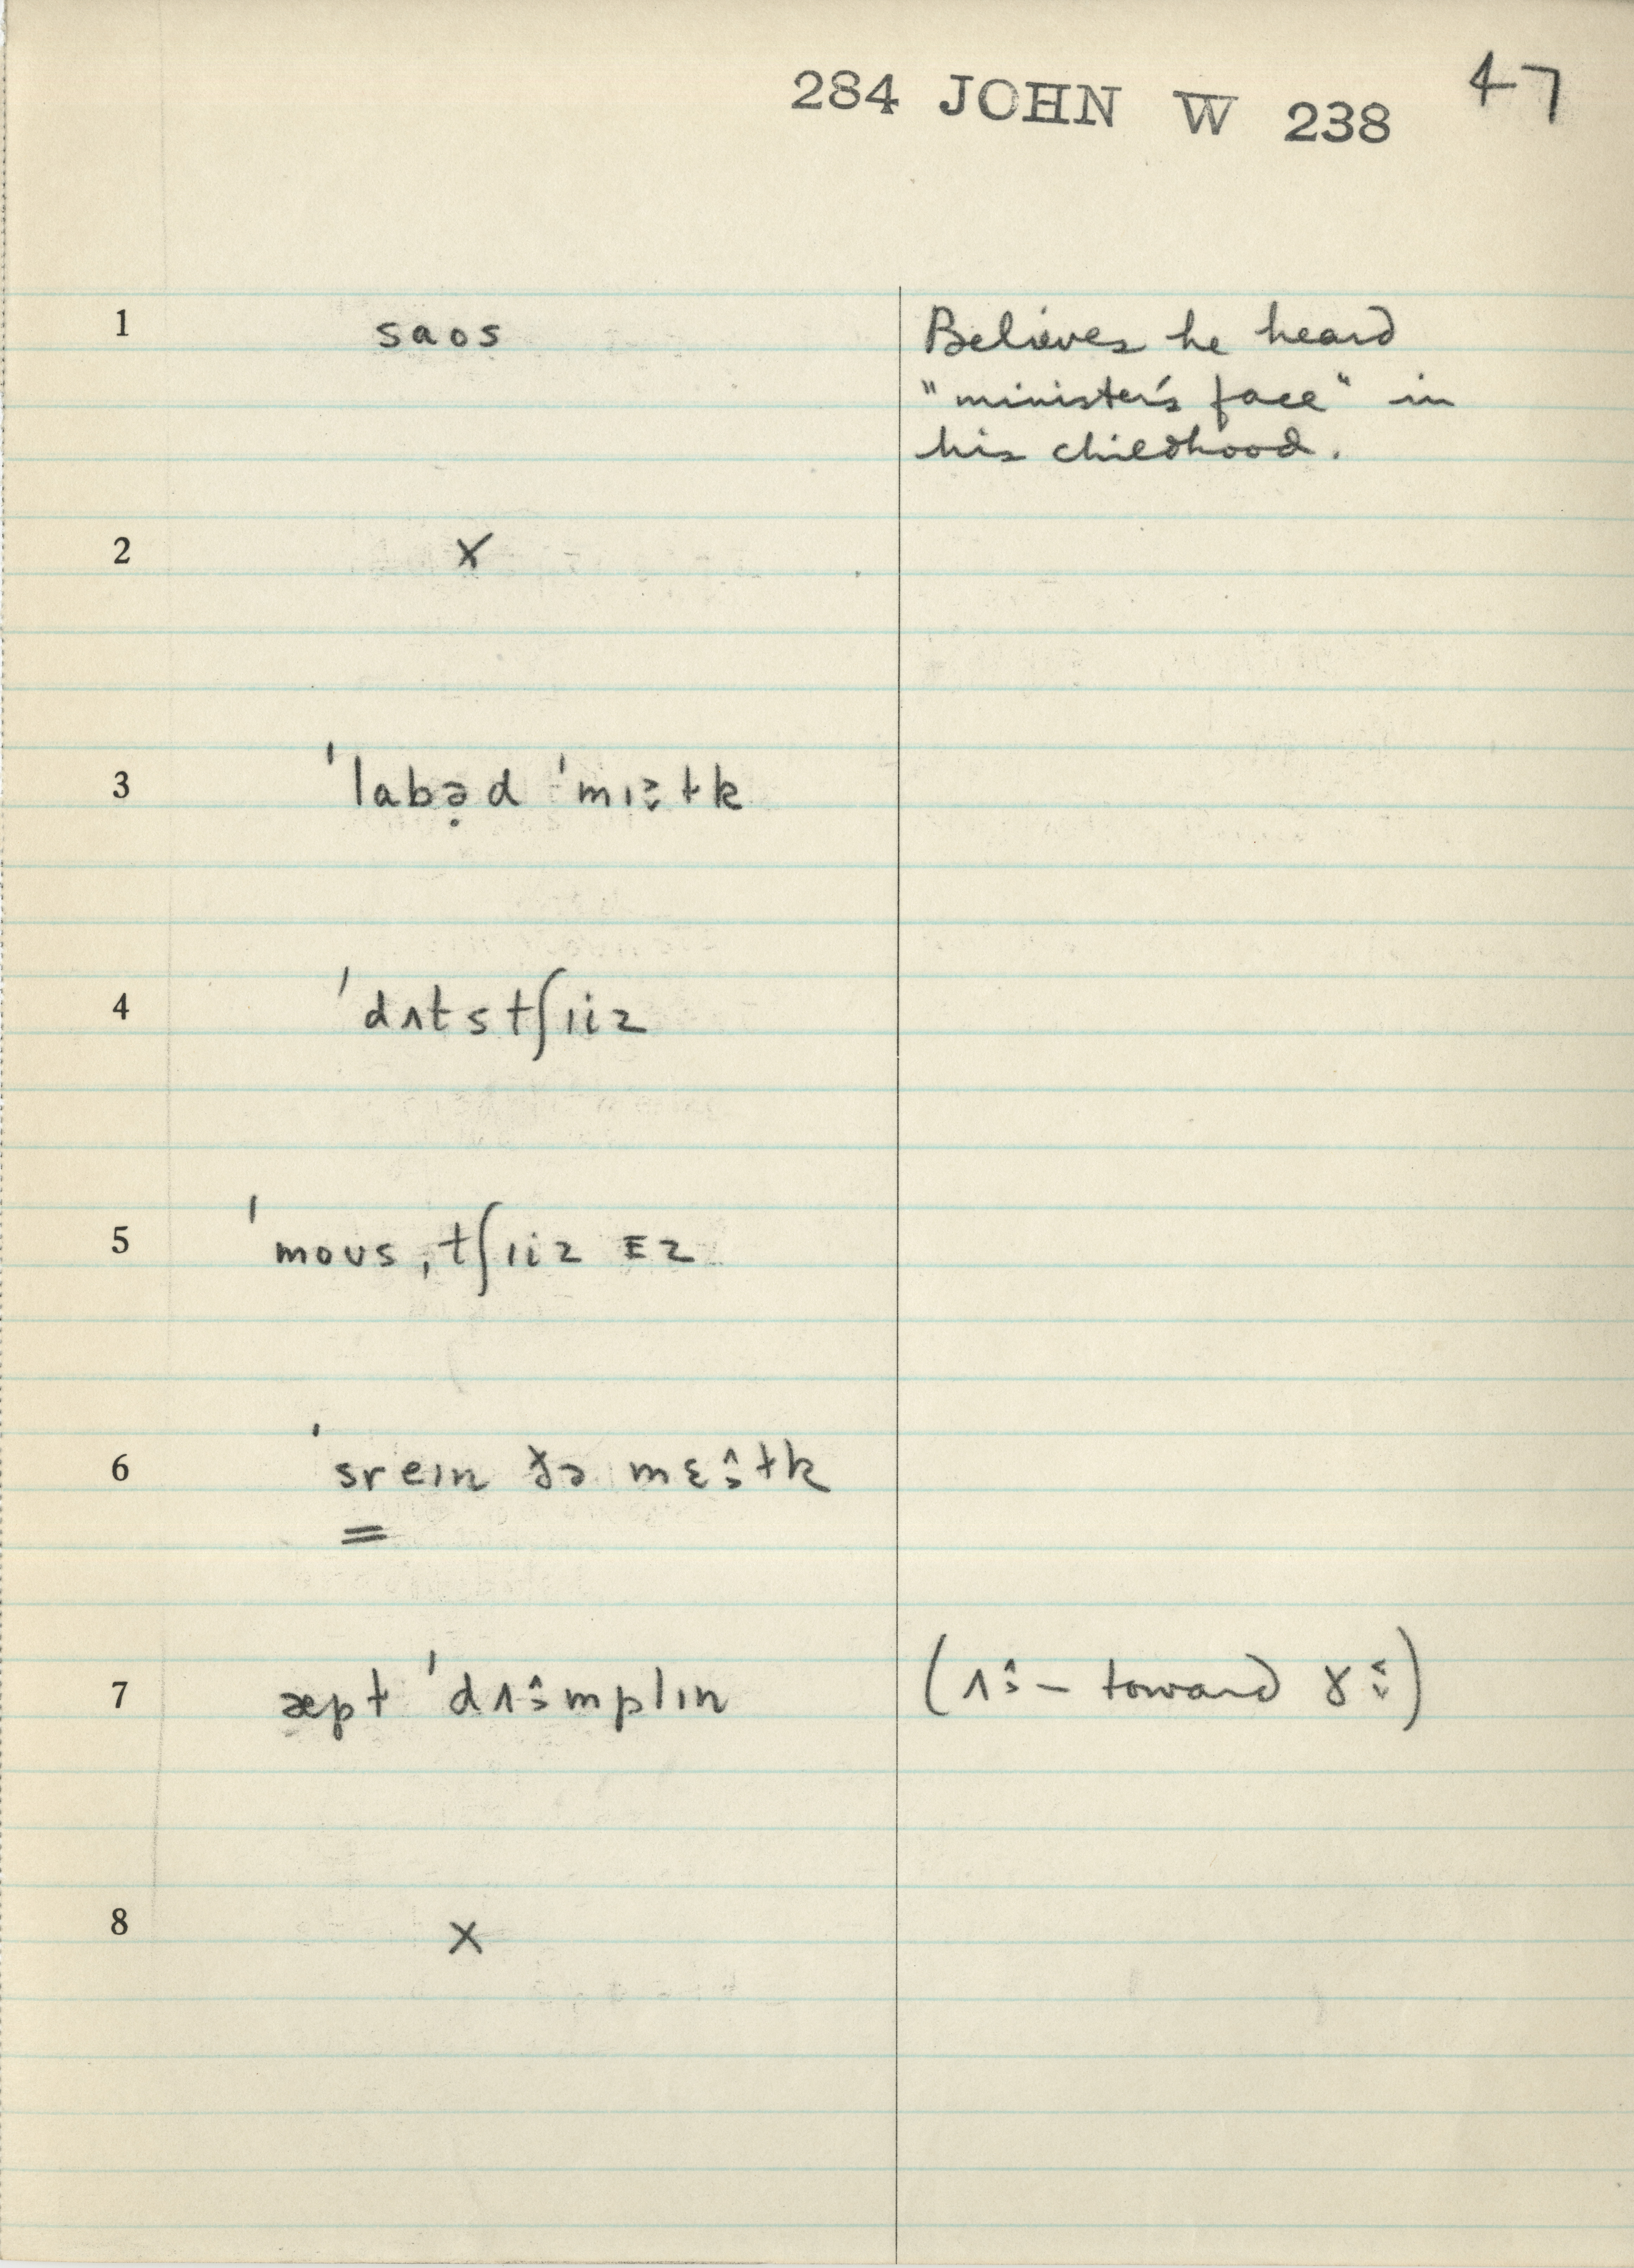 284 JOHN W 238 47
1 saos Believes he heard
"minister's face" in
his childhood.
2 X
3 ˈlabə̣d ˈmɪ tk
4 ˈdʌtstʃɪiz
5 ˈmoʊs ˌtʃɪiz ɪz
6 ˈsreɪn ðə mɛ tk
7 æpt ˈdʌ mplɪn (ʌ – toward ɤ )
8 X